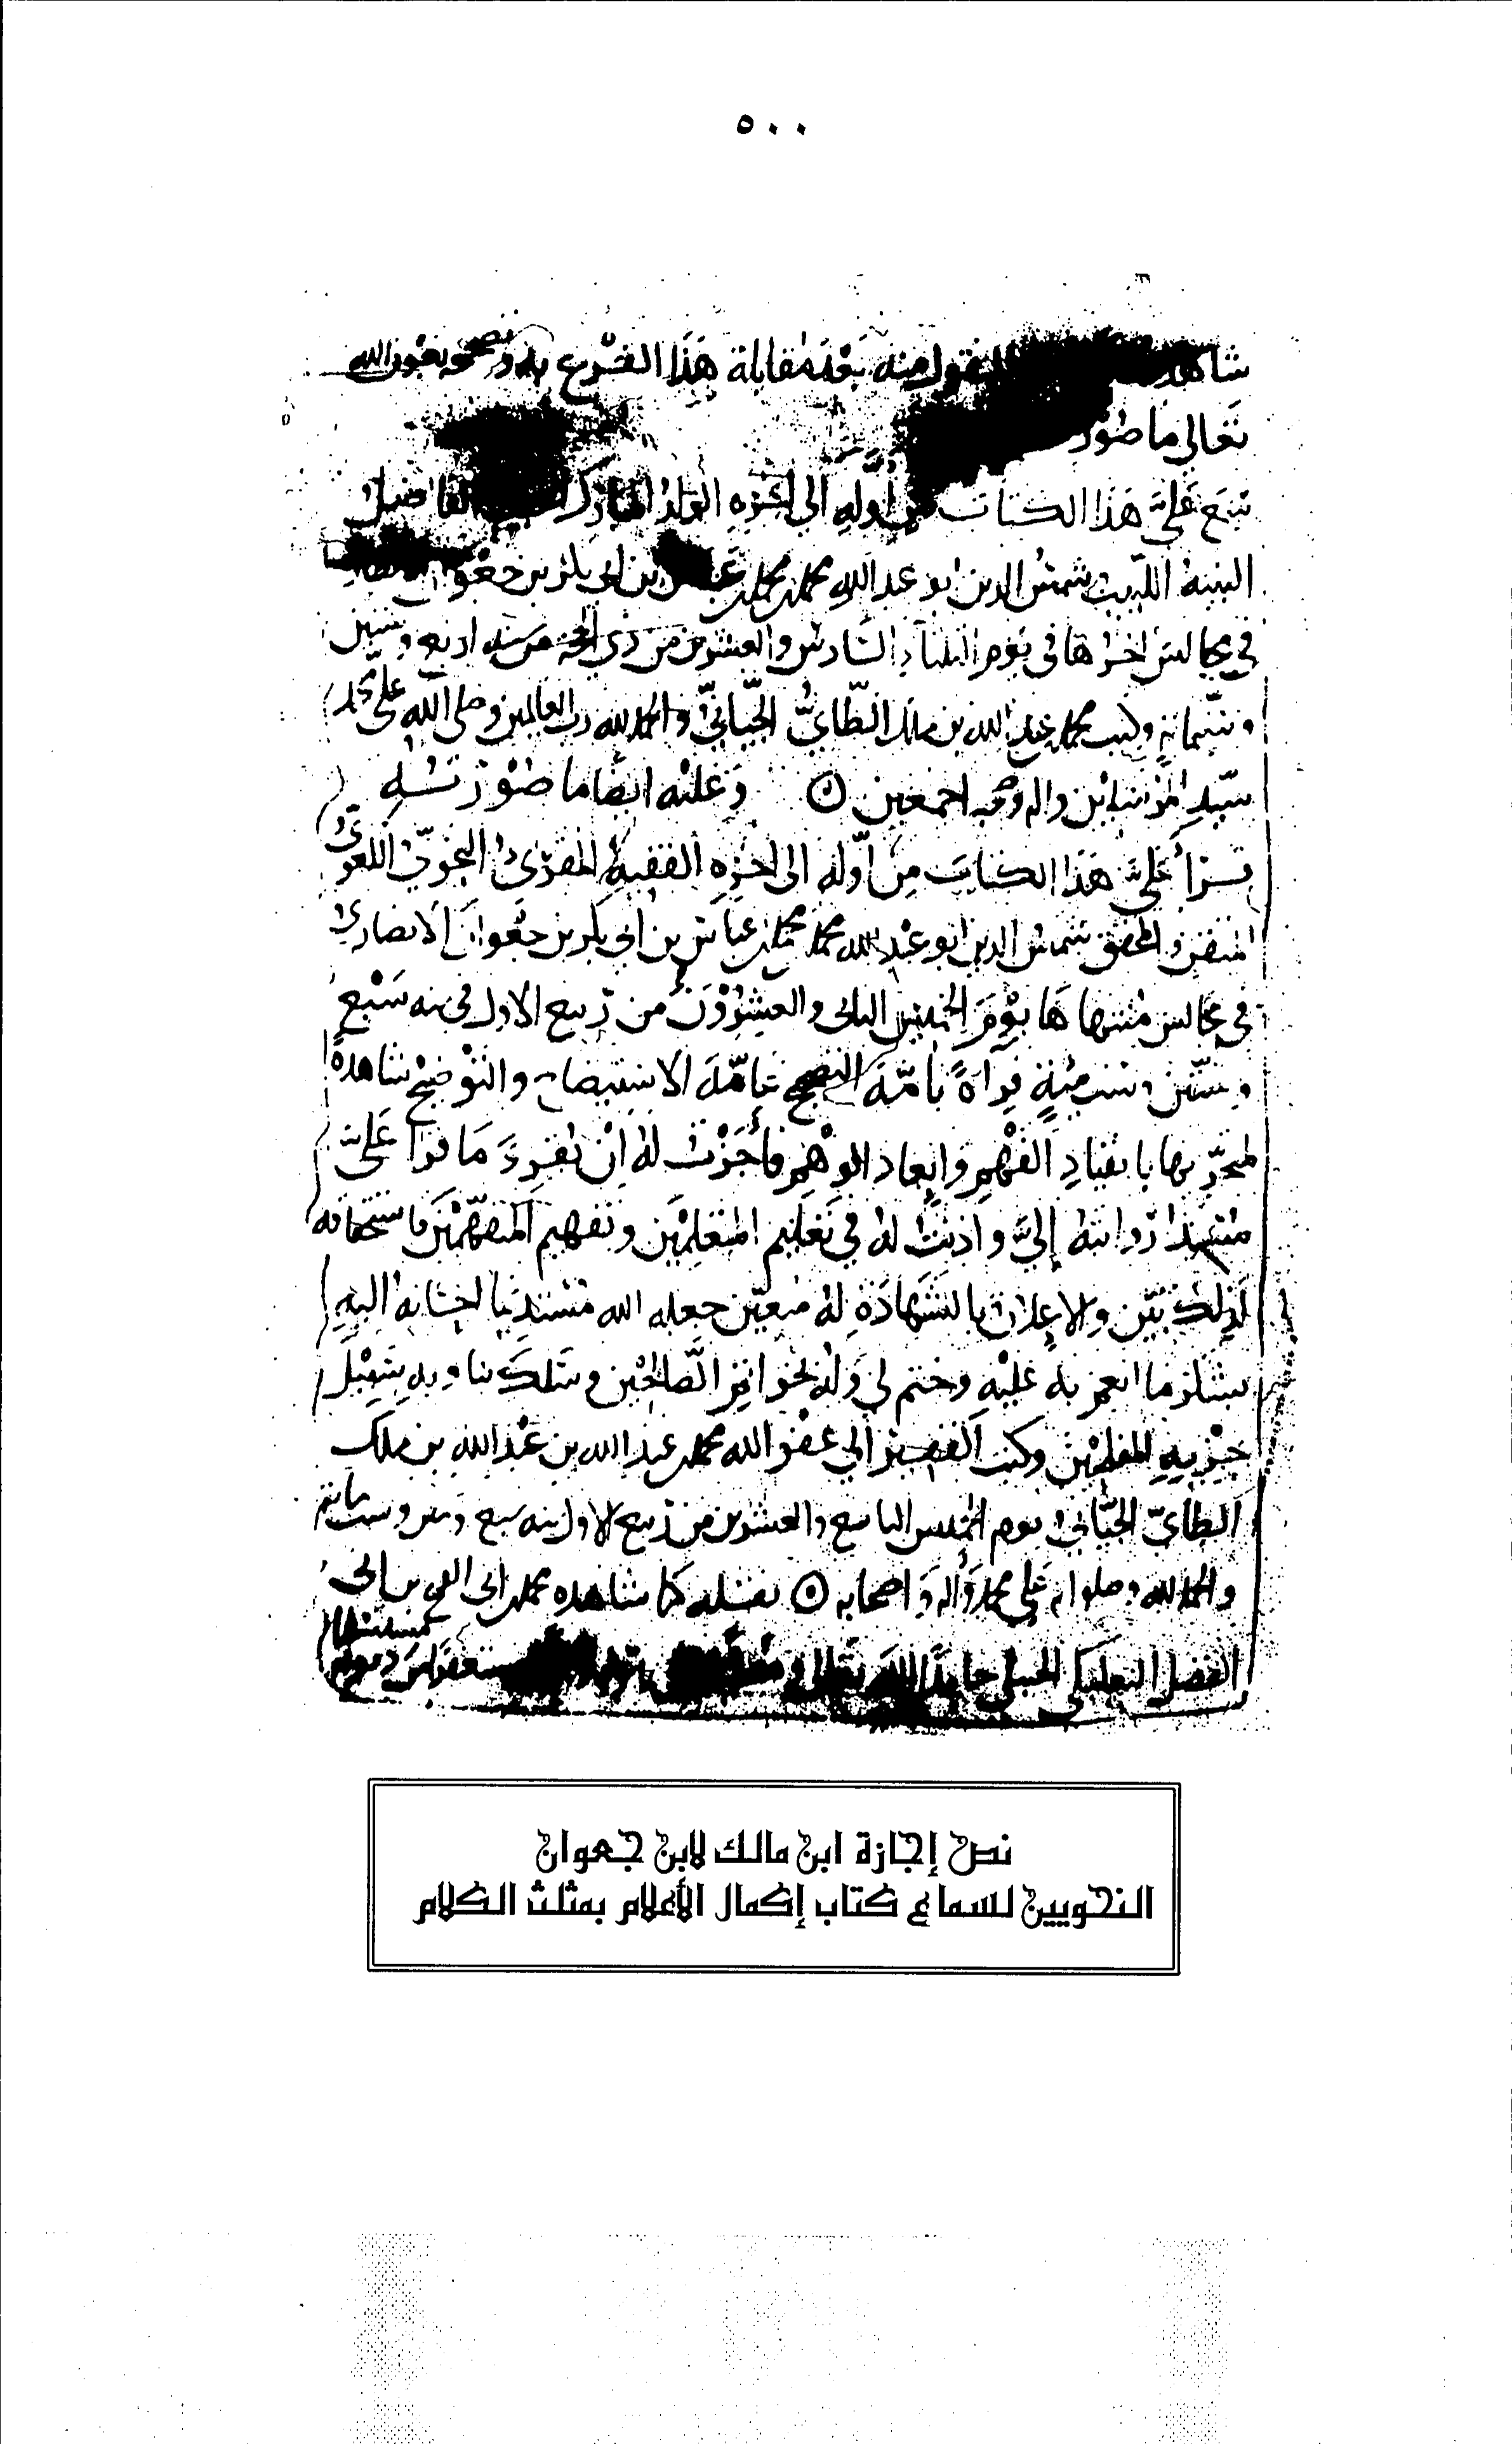 ٥٠٠
شاهد المنقول منه بعد مقابلة هذا الفرع به وتصحيحه بعون الله
تعالى ما صورته
سمع عليّ هذا الكتاب من أوله إلى آخره الولد المبارك الفاضل
النبيه اللبيب شمس الدين ابو عبد الله محمد بن محمد بن عباس بن ابي بكر بن جعوان الانصاري
في مجالس آخرها في يوم الثلثاء السادس والعشرين من ذي الحجة من سنة اربع وستين
وستمائة وكتب محمد بن عبد الله بن ملك الطائيّ الجيّانيّ والحمد لله رب العالمين وصلى الله على محمد
سيّد المرسلين واله وصحبه اجمعين وعليه ايضا ما صورته
قرأ عليّ هذا الكتاب من أوّله الى آخره الفقيه المقرئ النحويّ اللغويّ
المتقن المحقق شمس الدين ابو عبد الله محمد بن محمد بن عباس بن ابي بكر بن جعوان الانصاري
في مجالس منتهاها يوم الخميس والعشرون من ربيع الاول في سنه سبع
وستين وستمئة قراءة بامّة التصحيح عامّة الاستيضاح والتوضيح شاهدة
لمتحرّيها بانقياد الفهم وابعاد الوهم فأجزت له ان يقرئ ما قرا عليّ
مسندا روايته إليّ واذنت له في تعليم المتعلمين وتفهيم المتفهّمين فاستحقاقه
لذلك بيّن والاعلان بالشهادة له متعيّن جعله الله مستديما احسانه اليه
بشكر ما انعم به عليه وختم لي وله بخواتم الصالحين وسلك بنا وبه سبيل
حزبه المفلحين وكتب الفقير الى عفو الله محمد بن عبد الله بن عبد الله بن ملك
الطائيّ الجيّاني يوم الخميس التاسع والعشرين من ربيع الاول سنه سبع وستين وستمائة
والحمد لله وصلواته على محمد واله واصحابه نقله كما شاهده محمد بن ابي الفتح بن ابي
الفضل البعلبكي الحنبلي حامدا الله تعالى
نص إجازة ابن مالك لابن جعوان
النحويين لسماع كتاب إكمال الأعلام بمثلث الكلام